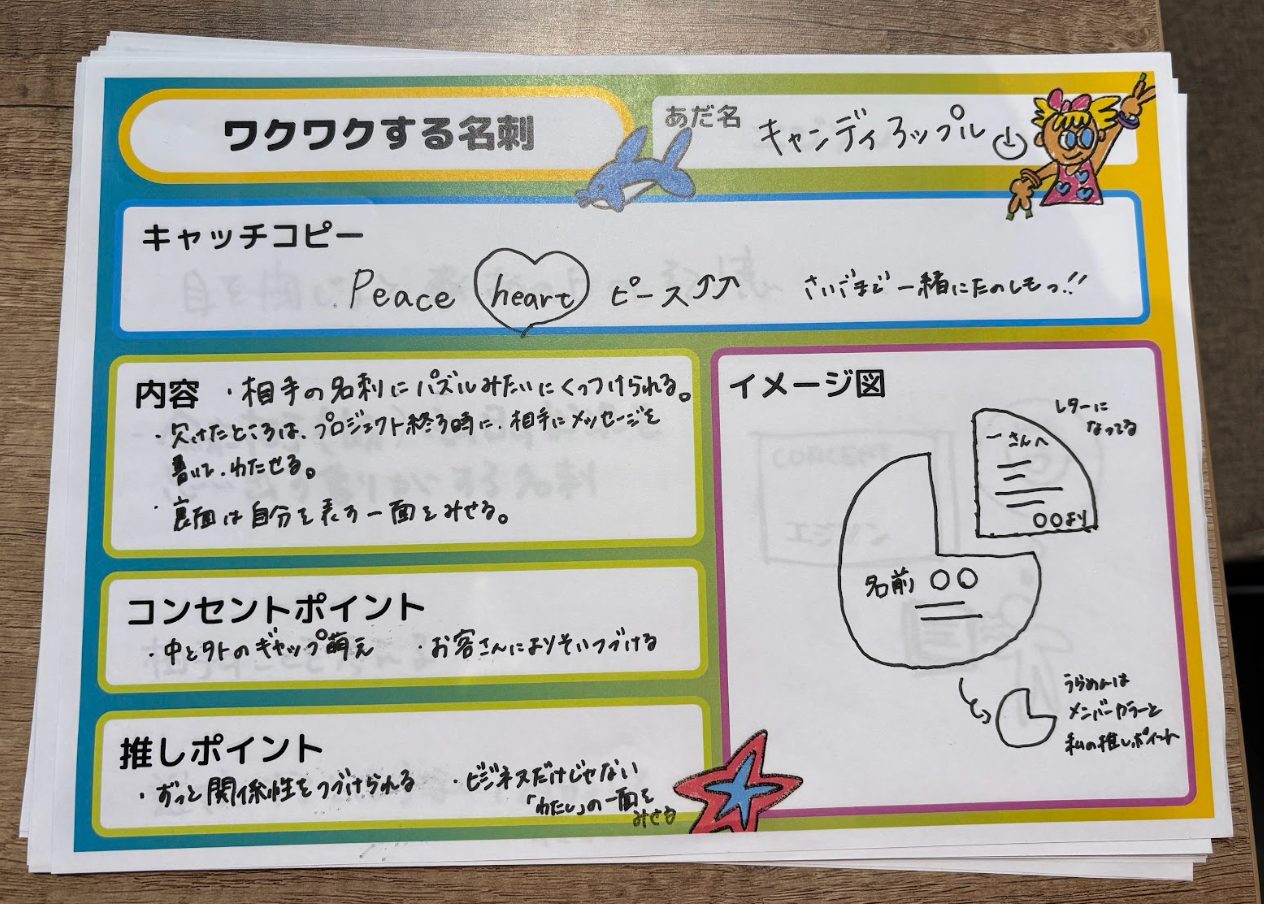 ワクワクする名刺
あだ名
キャンディろップル
キャッチコピー
Peace heart ピース↑↑ さいごまで一緒にたのしもっ!!
内容
・相手の名刺にパズルみたいにくっつけられる。
・欠けたところは、プロジェクト終る時に、相手にメッセージを
書いて、わたせる。
・裏面は自分を表す一面をみせる。
コンセントポイント
・中と外のギャップ萌え ・お客さんによりそいつづける
推しポイント
・ずっと関係性をつづけられる ・ビジネスだけじゃない
「わたし」の一面を
みせる
イメージ図
レターに
なってる
ーさんへ
○○より
名前 ○○
うらめんは
メンバーカラーと
私の推しポイント